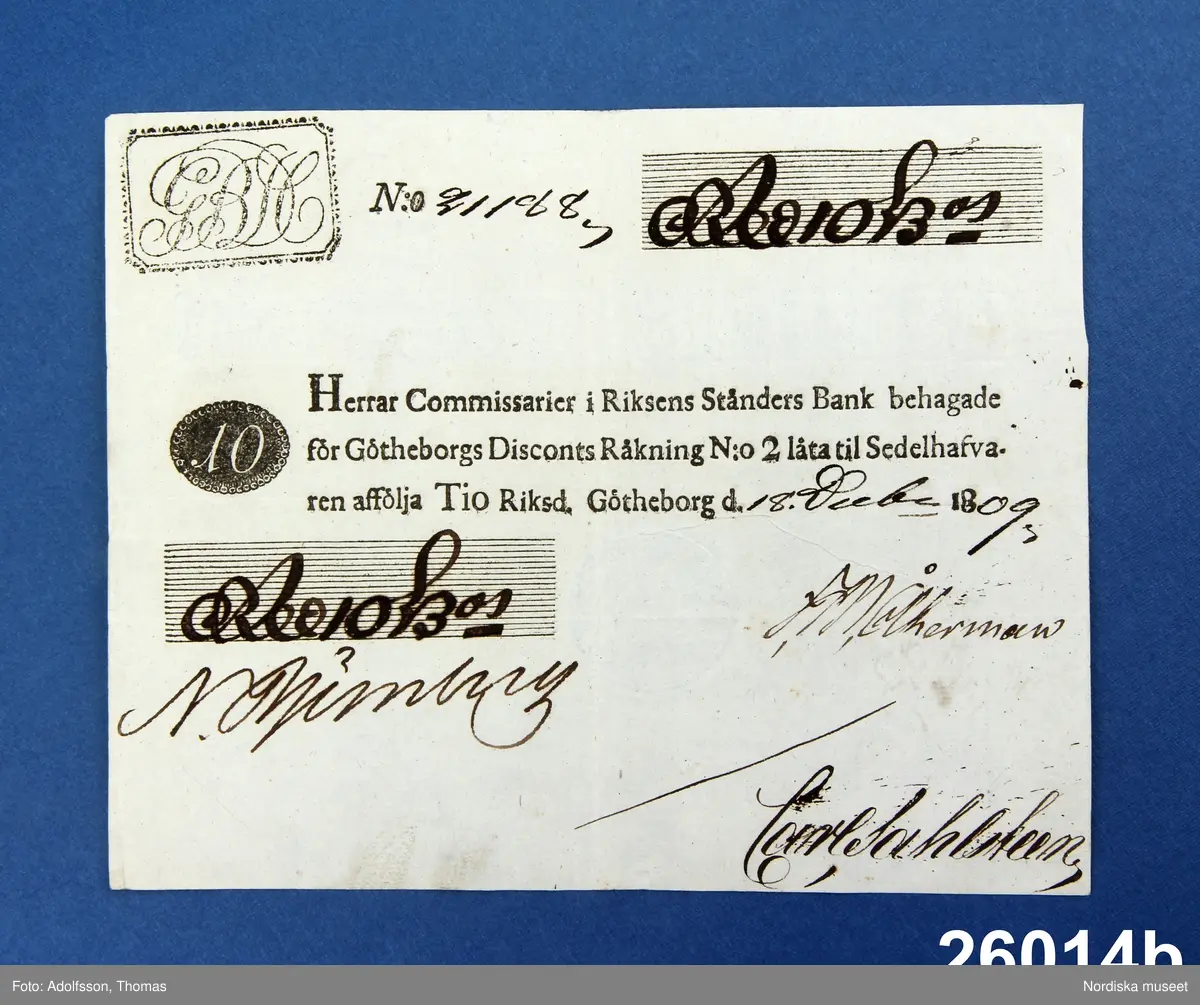 N:o 31188
Rdr 10 Bco
Herrar Commissarier i Riksens Stånders Bank behagade
10
för Götheborgs Disconts Räkning N:o 2 låta til Sedelhafva-
ren afföija Tio Riksd. Götheborg d. 18. Decbr 1809
Rdr 10 Bco
N. Björnberg
Carl Sahlsteen
26014b
Foto: Adolfsson, Thomas
Nordiska museet